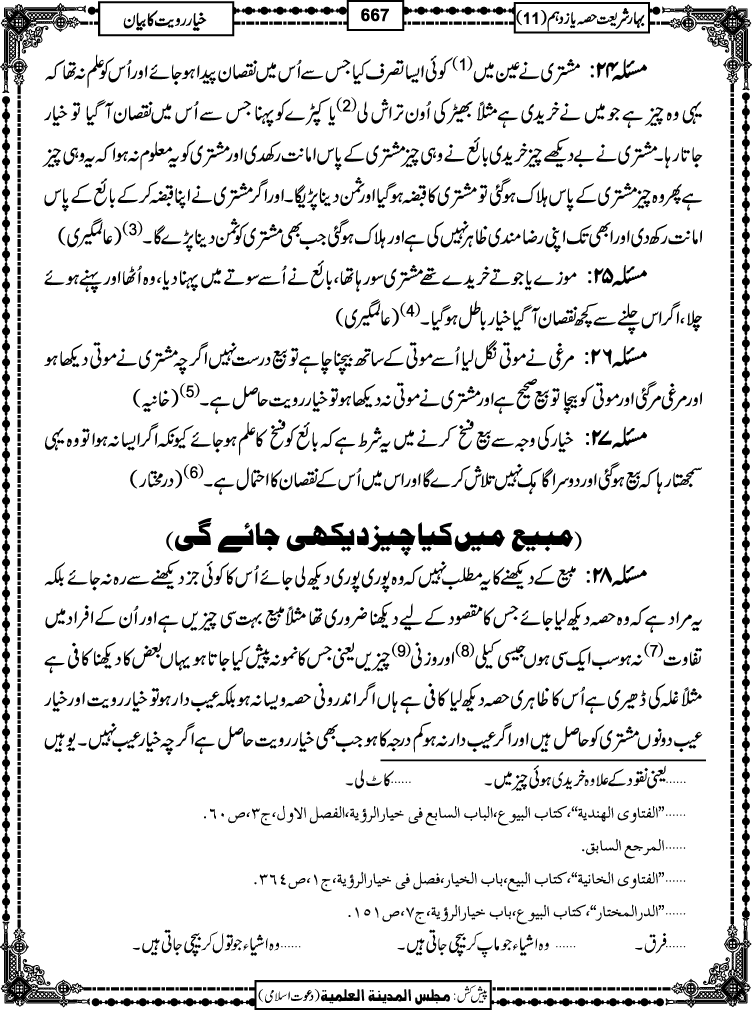 بہار شریعت حصہ یازدہم (11)
667
خیار رویت کا بیان
مسئلہ ۲۴: مشتری نے عین میں (1) کوئی ایسا تصرف کیا جس سے اُس میں نقصان پیدا ہو جائے اور اُس کو علم نہ تھا کہ
یہی وہ چیز ہے جو میں نے خریدی ہے مثلاً بھیڑ کی اُون تراش لی (2) یا کپڑے کو پہنا جس سے اُس میں نقصان آ گیا تو خیار
جاتا رہا۔ مشتری نے بے دیکھے چیز خریدی بائع نے وہی چیز مشتری کے پاس امانت رکھدی اور مشتری کو یہ معلوم نہ ہوا کہ یہ وہی چیز
ہے پھر وہ چیز مشتری کے پاس ہلاک ہوگئی تو مشتری کا قبضہ ہوگیا اور ثمن دینا پڑیگا۔ اور اگر مشتری نے اپنا قبضہ کر کے بائع کے پاس
امانت رکھ دی اور ابھی تک اپنی رضا مندی ظاہر نہیں کی ہے اور ہلاک ہوگئی جب بھی مشتری کو ثمن دینا پڑے گا۔ (3) (عالمگیری)
مسئلہ ۲۵: موزے یا جوتے خریدے تھے مشتری سو رہا تھا، بائع نے اُسے سوتے میں پہنا دیا، وہ اُٹھا اور پہنے ہوئے
چلا، اگر اس چلنے سے کچھ نقصان آ گیا خیار باطل ہوگیا۔ (4) (عالمگیری)
مسئلہ ۲۶: مرغی نے موتی نگل لیا اُسے موتی کے ساتھ بیچنا چاہے تو بیع درست نہیں اگرچہ مشتری نے موتی دیکھا ہو
اور مرغی مر گئی اور موتی کو بیچا تو بیع صحیح ہے اور مشتری نے موتی نہ دیکھا ہو تو خیار رویت حاصل ہے۔ (5) (خانیہ)
مسئلہ ۲۷: خیار کی وجہ سے بیع فسخ کرنے میں یہ شرط ہے کہ بائع کو فسخ کا علم ہو جائے کیونکہ اگر ایسا نہ ہوا تو وہ یہی
سمجھتا رہا کہ بیع ہوگئی اور دوسرا گاہک نہیں تلاش کرے گا اور اس میں اُس کے نقصان کا احتمال ہے۔ (6) (درمختار)
(مبیع میں کیا چیز دیکھی جائے گی)
مسئلہ ۲۸: مبیع کے دیکھنے کا یہ مطلب نہیں کہ وہ پوری پوری دیکھ لی جائے اُس کا کوئی جز دیکھنے سے رہ نہ جائے بلکہ
یہ مراد ہے کہ وہ حصہ دیکھ لیا جائے جس کا مقصود کے لیے دیکھنا ضروری تھا مثلاً مبیع بہت سی چیزیں ہے اور اُن کے افراد میں
تفاوت (7) نہ ہو سب ایک سی ہوں جیسی کیلی (8) اور وزنی (9) چیزیں یعنی جس کا نمونہ پیش کیا جاتا ہو یہاں بعض کا دیکھنا کافی ہے
مثلاً غلہ کی ڈھیری ہے اُس کا ظاہری حصہ دیکھ لیا کافی ہے ہاں اگر اندرونی حصہ ویسا نہ ہو بلکہ عیب دار ہو تو خیار رویت اور خیار
عیب دونوں مشتری کو حاصل ہیں اور اگر عیب دار نہ ہو کم درجہ کا ہو جب بھی خیار رویت حاصل ہے اگرچہ خیار عیب نہیں۔ یوہیں
......یعنی نقود کے علاوہ خریدی ہوئی چیز میں۔ ......کاٹ لی۔
......"الفتاوی الھندیۃ"، کتاب البیوع، الباب السابع فی خیار الرؤیۃ، الفصل الاول، ج۳، ص۶۰.
......المرجع السابق.
......"الفتاوی الخانیۃ"، کتاب البیع، باب الخیار، فصل فی خیار الرؤیۃ، ج۱، ص۳۶۴.
......"الدرالمختار"، کتاب البیوع، باب خیار الرؤیۃ، ج۷، ص۱۵۱.
......فرق۔ ......وہ اشیاء جو ماپ کر بیچی جاتی ہیں۔ ......وہ اشیاء جو تول کر بیچی جاتی ہیں۔
پیش کش: مجلس المدینۃ العلمیۃ (دعوت اسلامی)